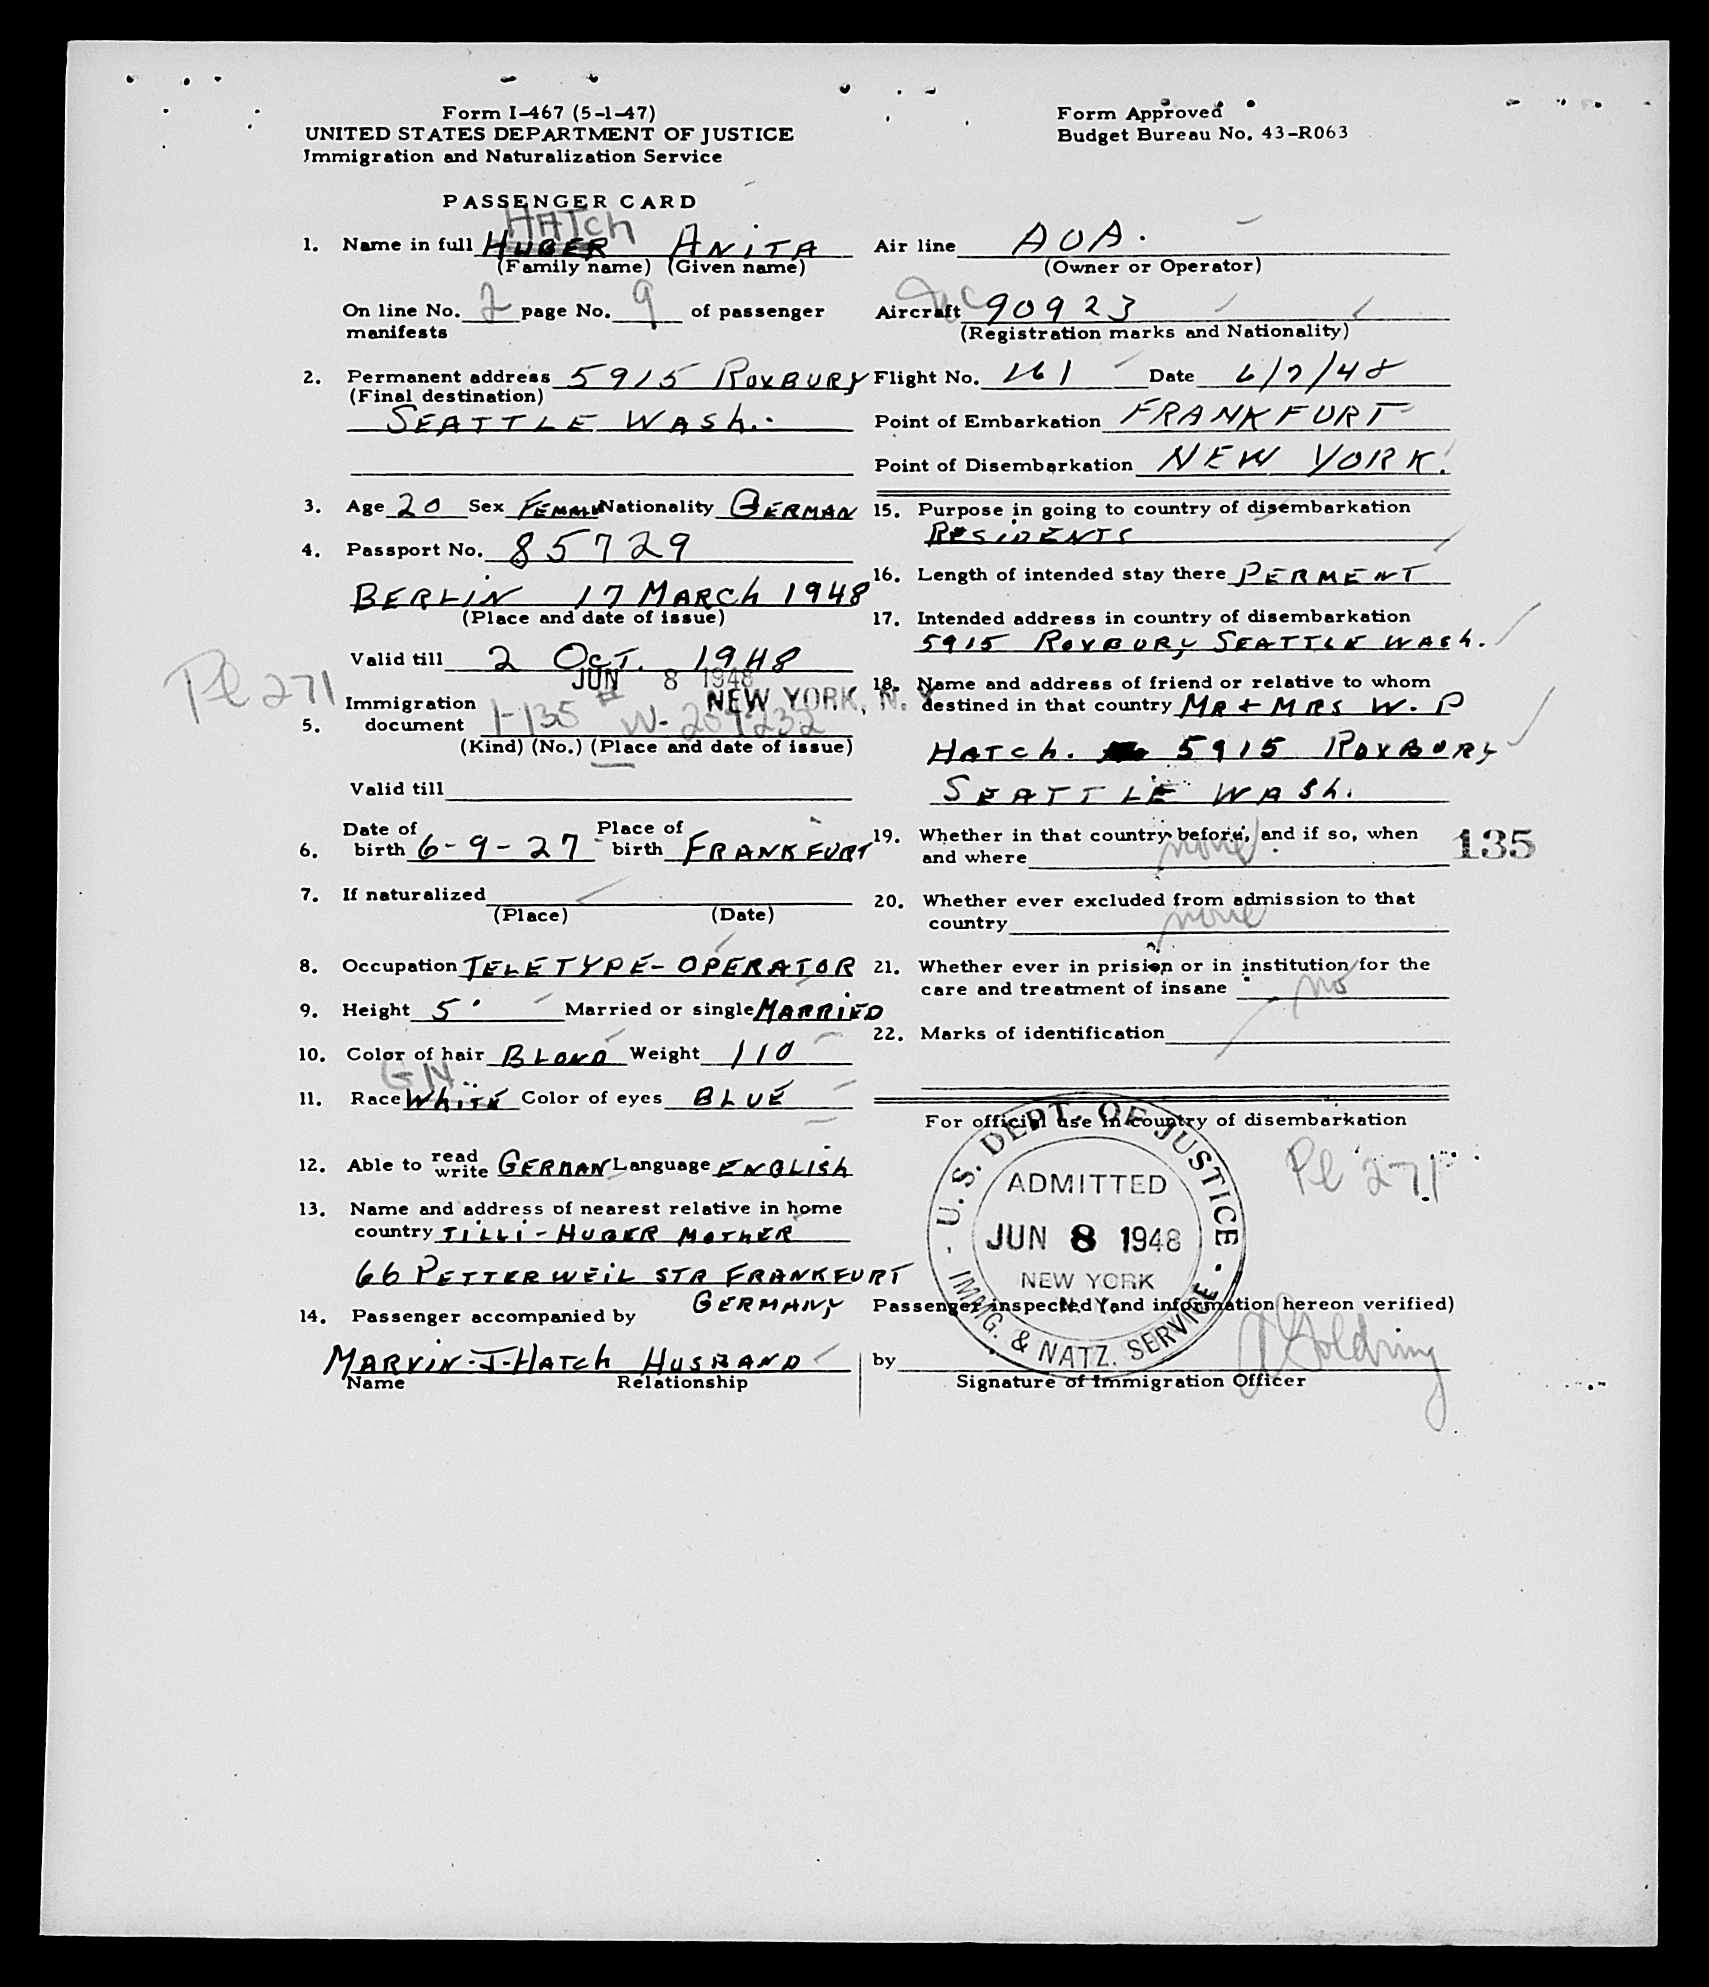 Form I-467 (5-1-47)
UNITED STATES DEPARTMENT OF JUSTICE
Immigration and Naturalization Service
Form Approved
Budget Bureau No. 43-R063
PASSENGER CARD
HATCH
1. Name in full HUBER ANITA
(Family name) (Given name)
On line No. 2 page No. 9 of passenger
manifests
2. Permanent address 5915 ROXBURY
(Final destination)
SEATTLE WASH.
3. Age 20 Sex FEMALE Nationality GERMAN
4. Passport No. 85729
BERLIN 17 MARCH 1948
(Place and date of issue)
Valid till 2 OCT. 1948
JUN 8 1948
NEW YORK, N. Y.
Pl 271
Immigration
5. document I-135 # W-207232
(Kind) (No.) (Place and date of issue)
Valid till
6. Date of birth 6-9-27 Place of birth FRANKFURT
7. If naturalized
(Place) (Date)
8. Occupation TELETYPE-OPERATOR
9. Height 5' Married or single MARRIED
10. Color of hair BLOND Weight 110
GN
11. Race WHITE Color of eyes BLUE
12. Able to read write GERMAN Language ENGLISH
13. Name and address of nearest relative in home
country TILLI-HUBER MOTHER
66 PETTERWEIL STR FRANKFURT
GERMANY
14. Passenger accompanied by
MARVIN-J-HATCH HUSBAND
Name Relationship
Air line AOA.
(Owner or Operator)
Aircraft NC 90923
(Registration marks and Nationality)
Flight No. 161 Date 6/7/48
Point of Embarkation FRANKFURT
Point of Disembarkation NEW YORK.
15. Purpose in going to country of disembarkation
RESIDENTS
16. Length of intended stay there PERMENT
17. Intended address in country of disembarkation
5915 ROXBURY SEATTLE WASH.
18. Name and address of friend or relative to whom
destined in that country MR + MRS W. P
HATCH. 5915 ROXBURY
SEATTLE WASH.
19. Whether in that country before, and if so, when
and where none
135
20. Whether ever excluded from admission to that
country none
21. Whether ever in prision or in institution for the
care and treatment of insane no
22. Marks of identification
For official use in country of disembarkation
U.S. DEPT. OF JUSTICE
ADMITTED
JUN 8 1948
NEW YORK
N. Y.
IMMG. & NATZ. SERVICE
Pl 271
Passenger inspected (and information hereon verified)
by Goldring
Signature of Immigration Officer